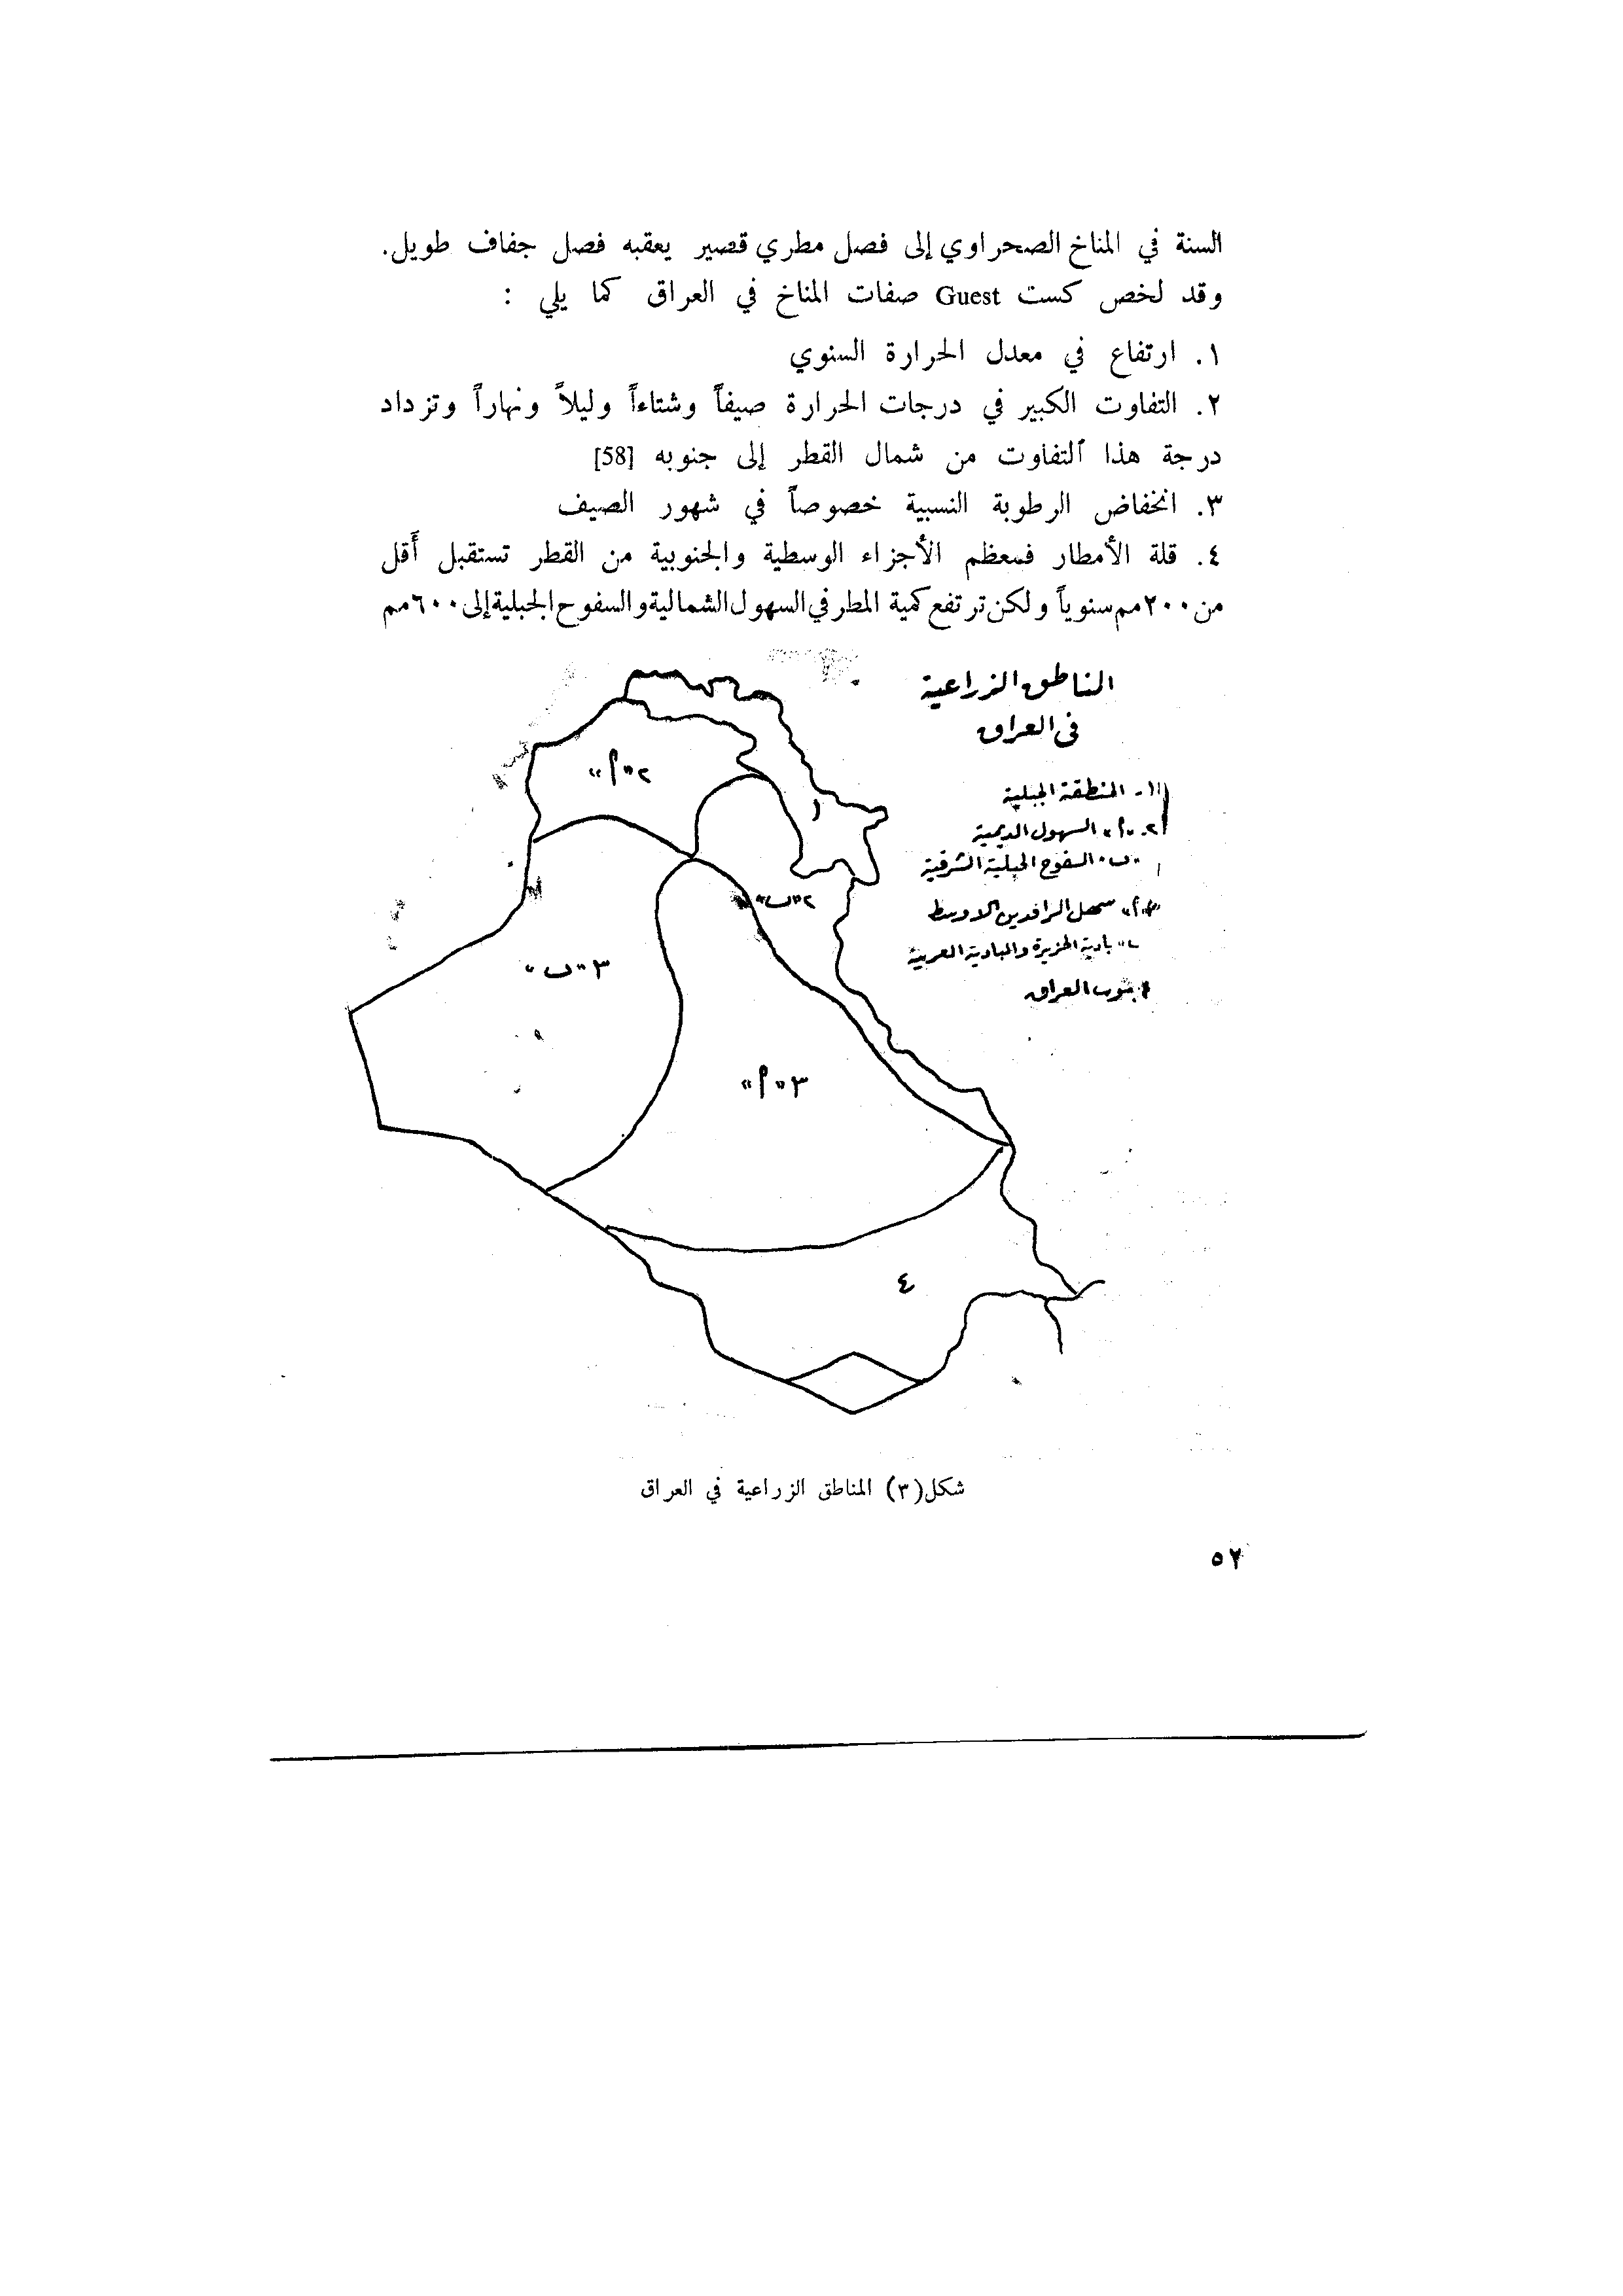 السنة في المناخ الصحراوي إلى فصل مطري قصير يعقبه فصل جفاف طويل.
وقد لخص كست Guest صفات المناخ في العراق كما يلي :
١. ارتفاع في معدل الحرارة السنوي
٢. التفاوت الكبير في درجات الحرارة صيفاً وشتاءاً وليلاً ونهاراً وتزداد
درجة هذا التفاوت من شمال القطر إلى جنوبه [58]
٣. انخفاض الرطوبة النسبية خصوصاً في شهور الصيف
٤. قلة الأمطار فمعظم الأجزاء الوسطية والجنوبية من القطر تستقبل أقل
من ٢٠٠مم سنوياً ولكن ترتفع كمية المطر في السهول الشمالية والسفوح الجبلية إلى ٦٠٠مم
المناطق الزراعية
في العراق
١- المنطقة الجبلية
٢- "أ" السهول الديمية
"ب" السفوح الجبلية الشرقية
٣ "أ" سهل الرافدين الاوسط
"ب" بادية الجزيرة والبادية العربية
٤ جنوب العراق
٢ "أ"
١
٢ "ب"
٣ "ب"
٣ "أ"
٤
شكل (٣) المناطق الزراعية في العراق
٥٢